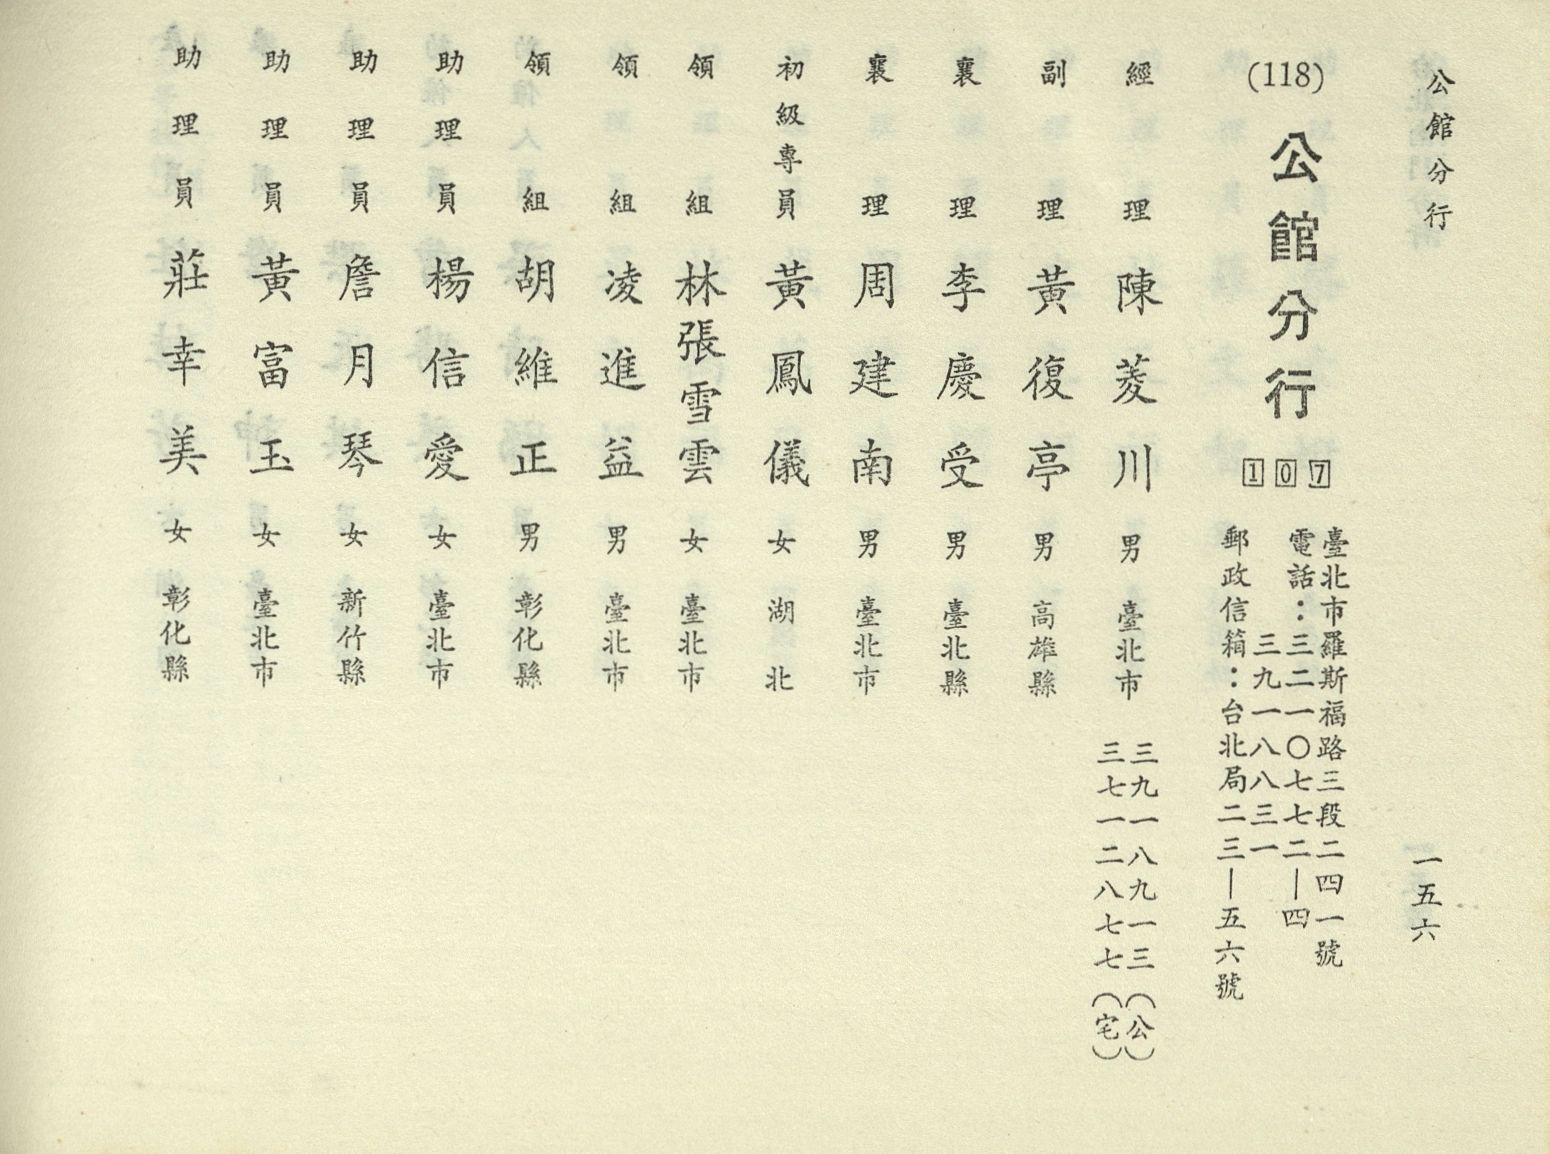 公館分行
一五六
(118) 公館分行 107
臺北市羅斯福路三段二四一號
電話：三二一〇七七二—四
三九一八八三一
郵政信箱：台北局二三—五六號
經理 陳菱川 男 臺北市 三九一八九一三（公）
三七一二八七七（宅）
副理 黃復亭 男 高雄縣
襄理 李慶受 男 臺北縣
襄理 周建南 男 臺北市
初級專員 黃鳳儀 女 湖北
領組 林張雪雲 女 臺北市
領組 凌進益 男 臺北市
領組 胡維正 男 彰化縣
助理員 楊信愛 女 臺北市
助理員 詹月琴 女 新竹縣
助理員 黃富玉 女 臺北市
助理員 莊幸美 女 彰化縣